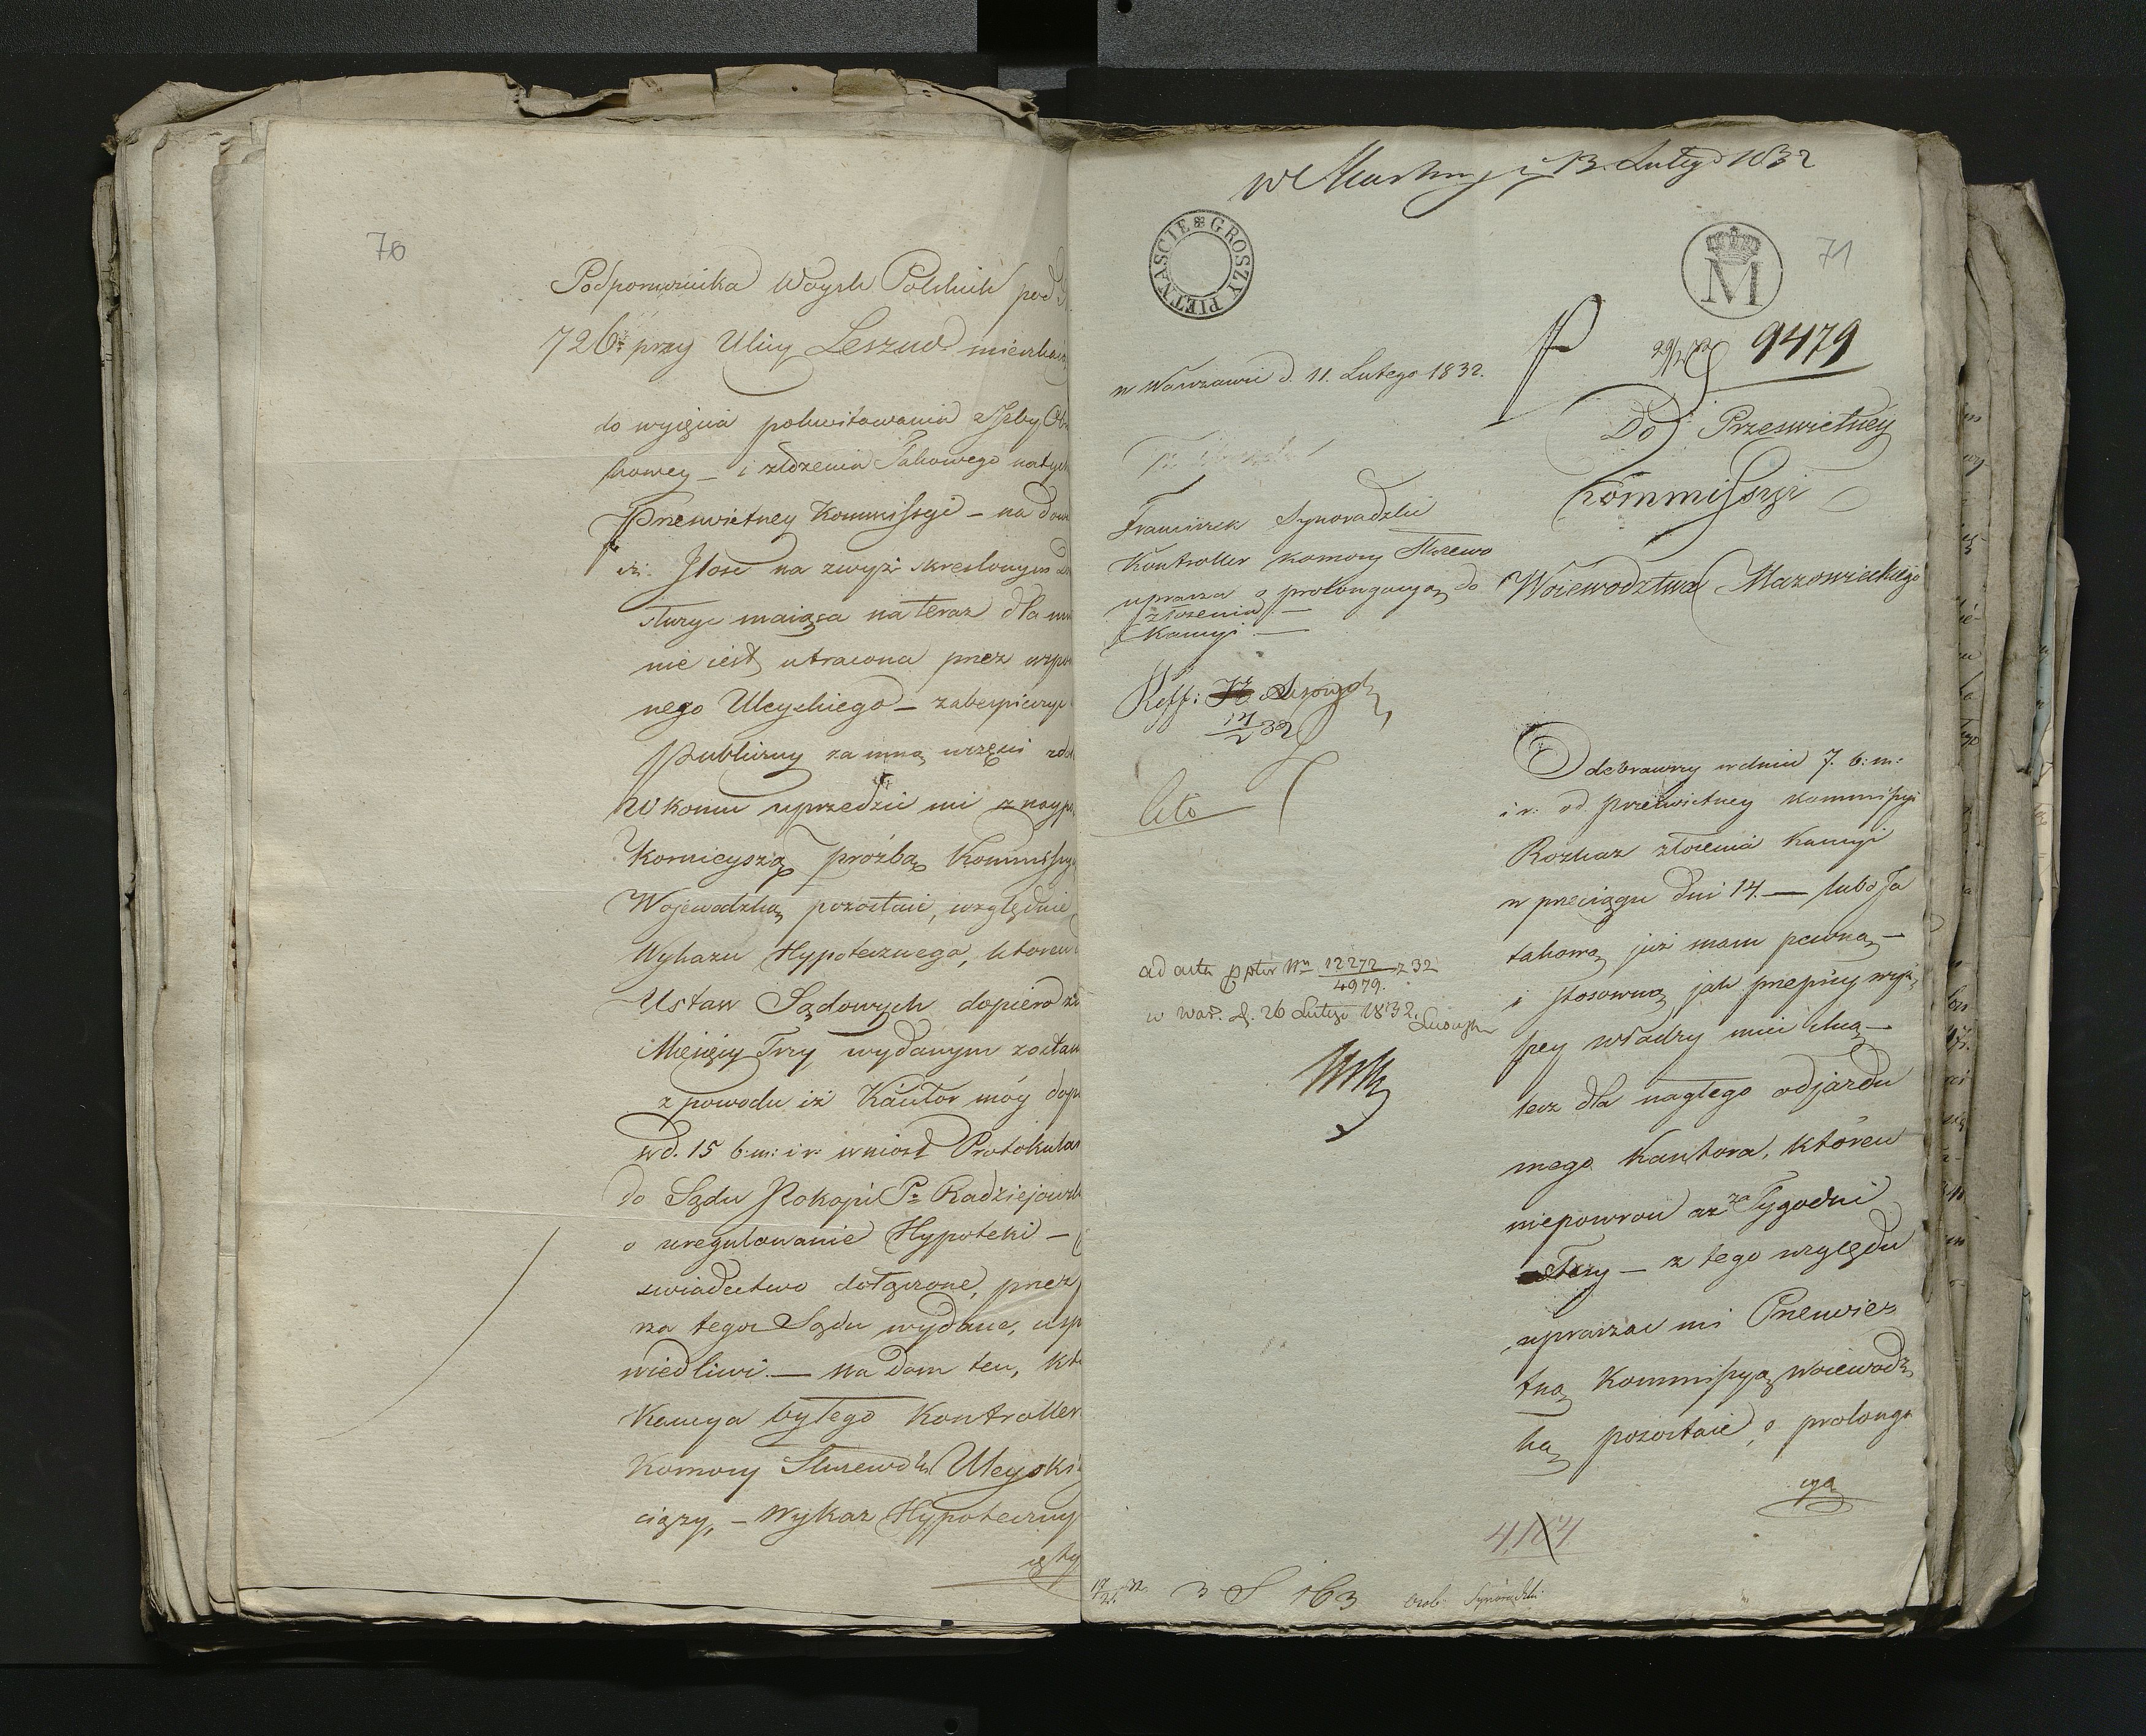 70
Podporucznika Woysk Polskich pod
726 przy Ulicy Leszno
do wyięcia pokwitowania z Izby
kowey – i złożenia Takowego
Prześwietney Kommissyi – na
iż. Ilość na zwyż skreślonym
maiąca na teraz dla
nie iest utracona przez
nego Uleyskiego – zabespieczyć
Publiczny za mną
W końcu uprzedzić mi z
Kornieyszą prośbą
Wojewodzką pozostaie, względnie
Wykazu Hypotecznego,
Ustaw Sądowych dopiero za
Miesięcy Trzy wydanym
z powodu iż Kautor móy
w d. 15 b: m: i r: wniosł
do Sądu Pokoju Ptu
o uregulowanie Hypoteki –
swiadectwo dołączone, przez
tegoż Sądu wydane,
wiedliwi. – na dom ten,
Kaucya byłego
Komory
ciąży, – Wykaz Hypoteczny
71
13. Lutego 1832
GROSZY PIĘTNAŚCIE
M
9479
w Warszawie d. 11. Lutego 1832.
Do Prześwietney
Kommissyi
Woiewodztwa Mazowieckiego
Franciszek Synoradzki
Kontroller Komory Służewo
uprasza o prolongacyą do
złożenia
Kaucyi. –
Reff:
Cito
Odebrawszy w dniu 7. b: m:
i r. od prześwietney Kommissyi
Rozkaz złożenia Kaucyi
w przeciągu dni 14. – lubo Ja
takową już mam pewną –
i stosowną jak przepisy wyż-
szey władzy mieć chcą –
lecz dla nagłego odjazdu
mego Kautora, któren
niepowróci aż za Tygodni
Trzy – z tego względu
upraszać mi Prześwie-
tną Kommissyą Woiewodz-
ką pozostaie, o prolonga
cyą
ad acta Nr 12272 z 32
4979.
w War. d. 26 Lutego 1832.
4184
3 S 163
Synoradzki